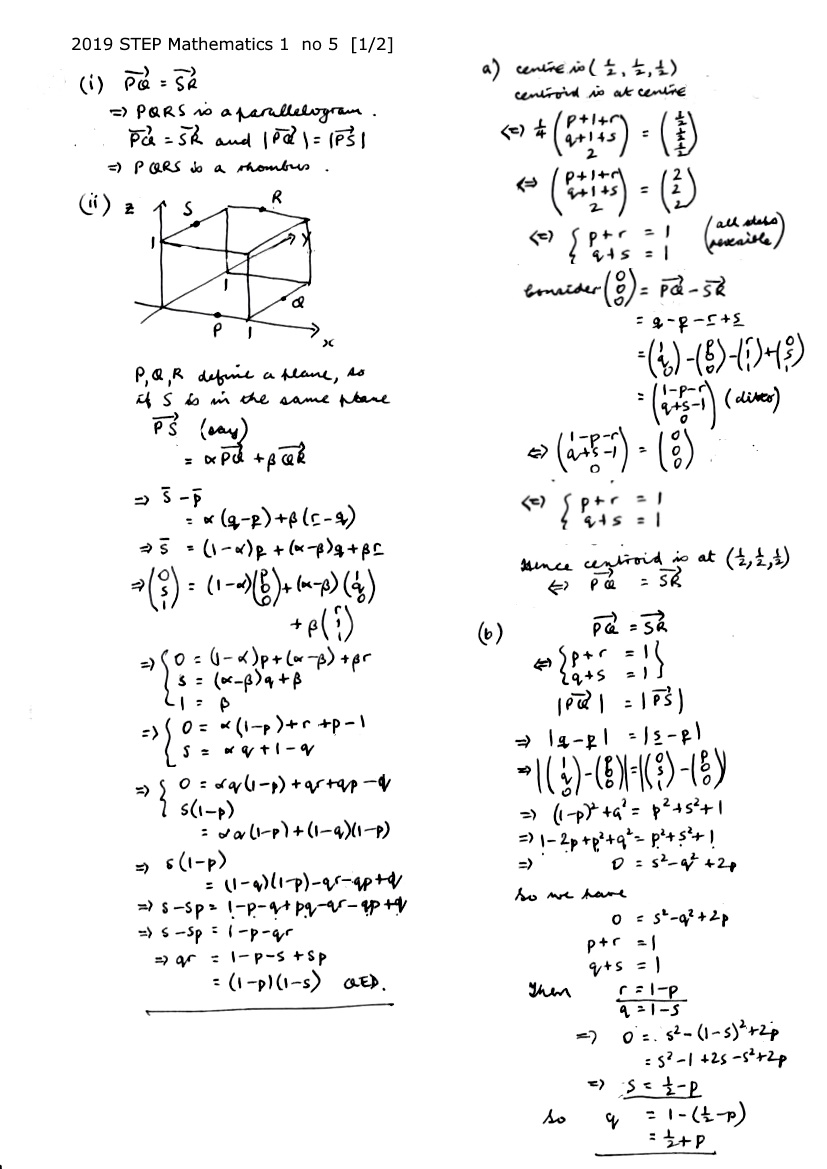 2019 STEP Mathematics 1 no 5 [1/2]
(i) PQ→ = SR→
⇒ PQRS is a parallelogram.
PQ→ = SR→ and |PQ→| = |PS→|
⇒ PQRS is a rhombus.
(ii) z
S
R
1
y
1
Q
P
1
x
P, Q, R define a plane, so
if S is in the same plane
PS→ (say)
= αPQ→ + βQR→
⇒ s̄ - p̄
= α(q-p)+β(r-q)
⇒ s̄ = (1-α)p+(α-β)q+βr
⇒ (0 s 1) = (1-α)(p 0 0)+(α-β)(1 q 0)
+ β(r 1 1)
⇒ { 0 = (1-α)p+(α-β)+βr
s = (α-β)q+β
1 = β
⇒ { 0 = α(1-p)+r+p-1
s = αq+1-q
⇒ { 0 = αq(1-p)+qr+qp-q
s(1-p)
= αq(1-p)+(1-q)(1-p)
⇒ s(1-p)
= (1-q)(1-p)-qr-qp+q
⇒ s-sp = 1-p-q+pq-qr-qp+q
⇒ s-sp = 1-p-qr
⇒ qr = 1-p-s+sp
= (1-p)(1-s) QED.
a) centre is (½, ½, ½)
centroid is at centre
⇔ ¼ (p+1+r q+1+s 2) = (½ ½ ½)
⇔ (p+1+r q+1+s 2) = (2 2 2)
⇔ { p+r = 1
q+s = 1 (all steps reversible)
Consider (0 0 0) = PQ→ - SR→
= q-p-r+s
= (1 q 0)-(p 0 0)-(r 1 1)+(0 s 1)
= (1-p-r q+s-1 0) (ditto)
⇔ (1-p-r q+s-1 0) = (0 0 0)
⇔ { p+r = 1
q+s = 1
Hence centroid is at (½,½,½)
⇔ PQ→ = SR→
(b) PQ→ = SR→
⇔ { p+r = 1
q+s = 1 }
|PQ→| = |PS→|
⇒ |q-p| = |s-p|
⇒ |(1 q 0)-(p 0 0)|=|(0 s 1)-(p 0 0)|
⇒ (1-p)²+q² = p²+s²+1
⇒ 1-2p+p²+q² = p²+s²+1
⇒ 0 = s²-q²+2p
So we have
0 = s²-q²+2p
p+r = 1
q+s = 1
Then r = 1-p
q = 1-s
⇒ 0 = s²-(1-s)²+2p
= s²-1+2s-s²+2p
⇒ s = ½-p
So q = 1-(½-p)
= ½+p